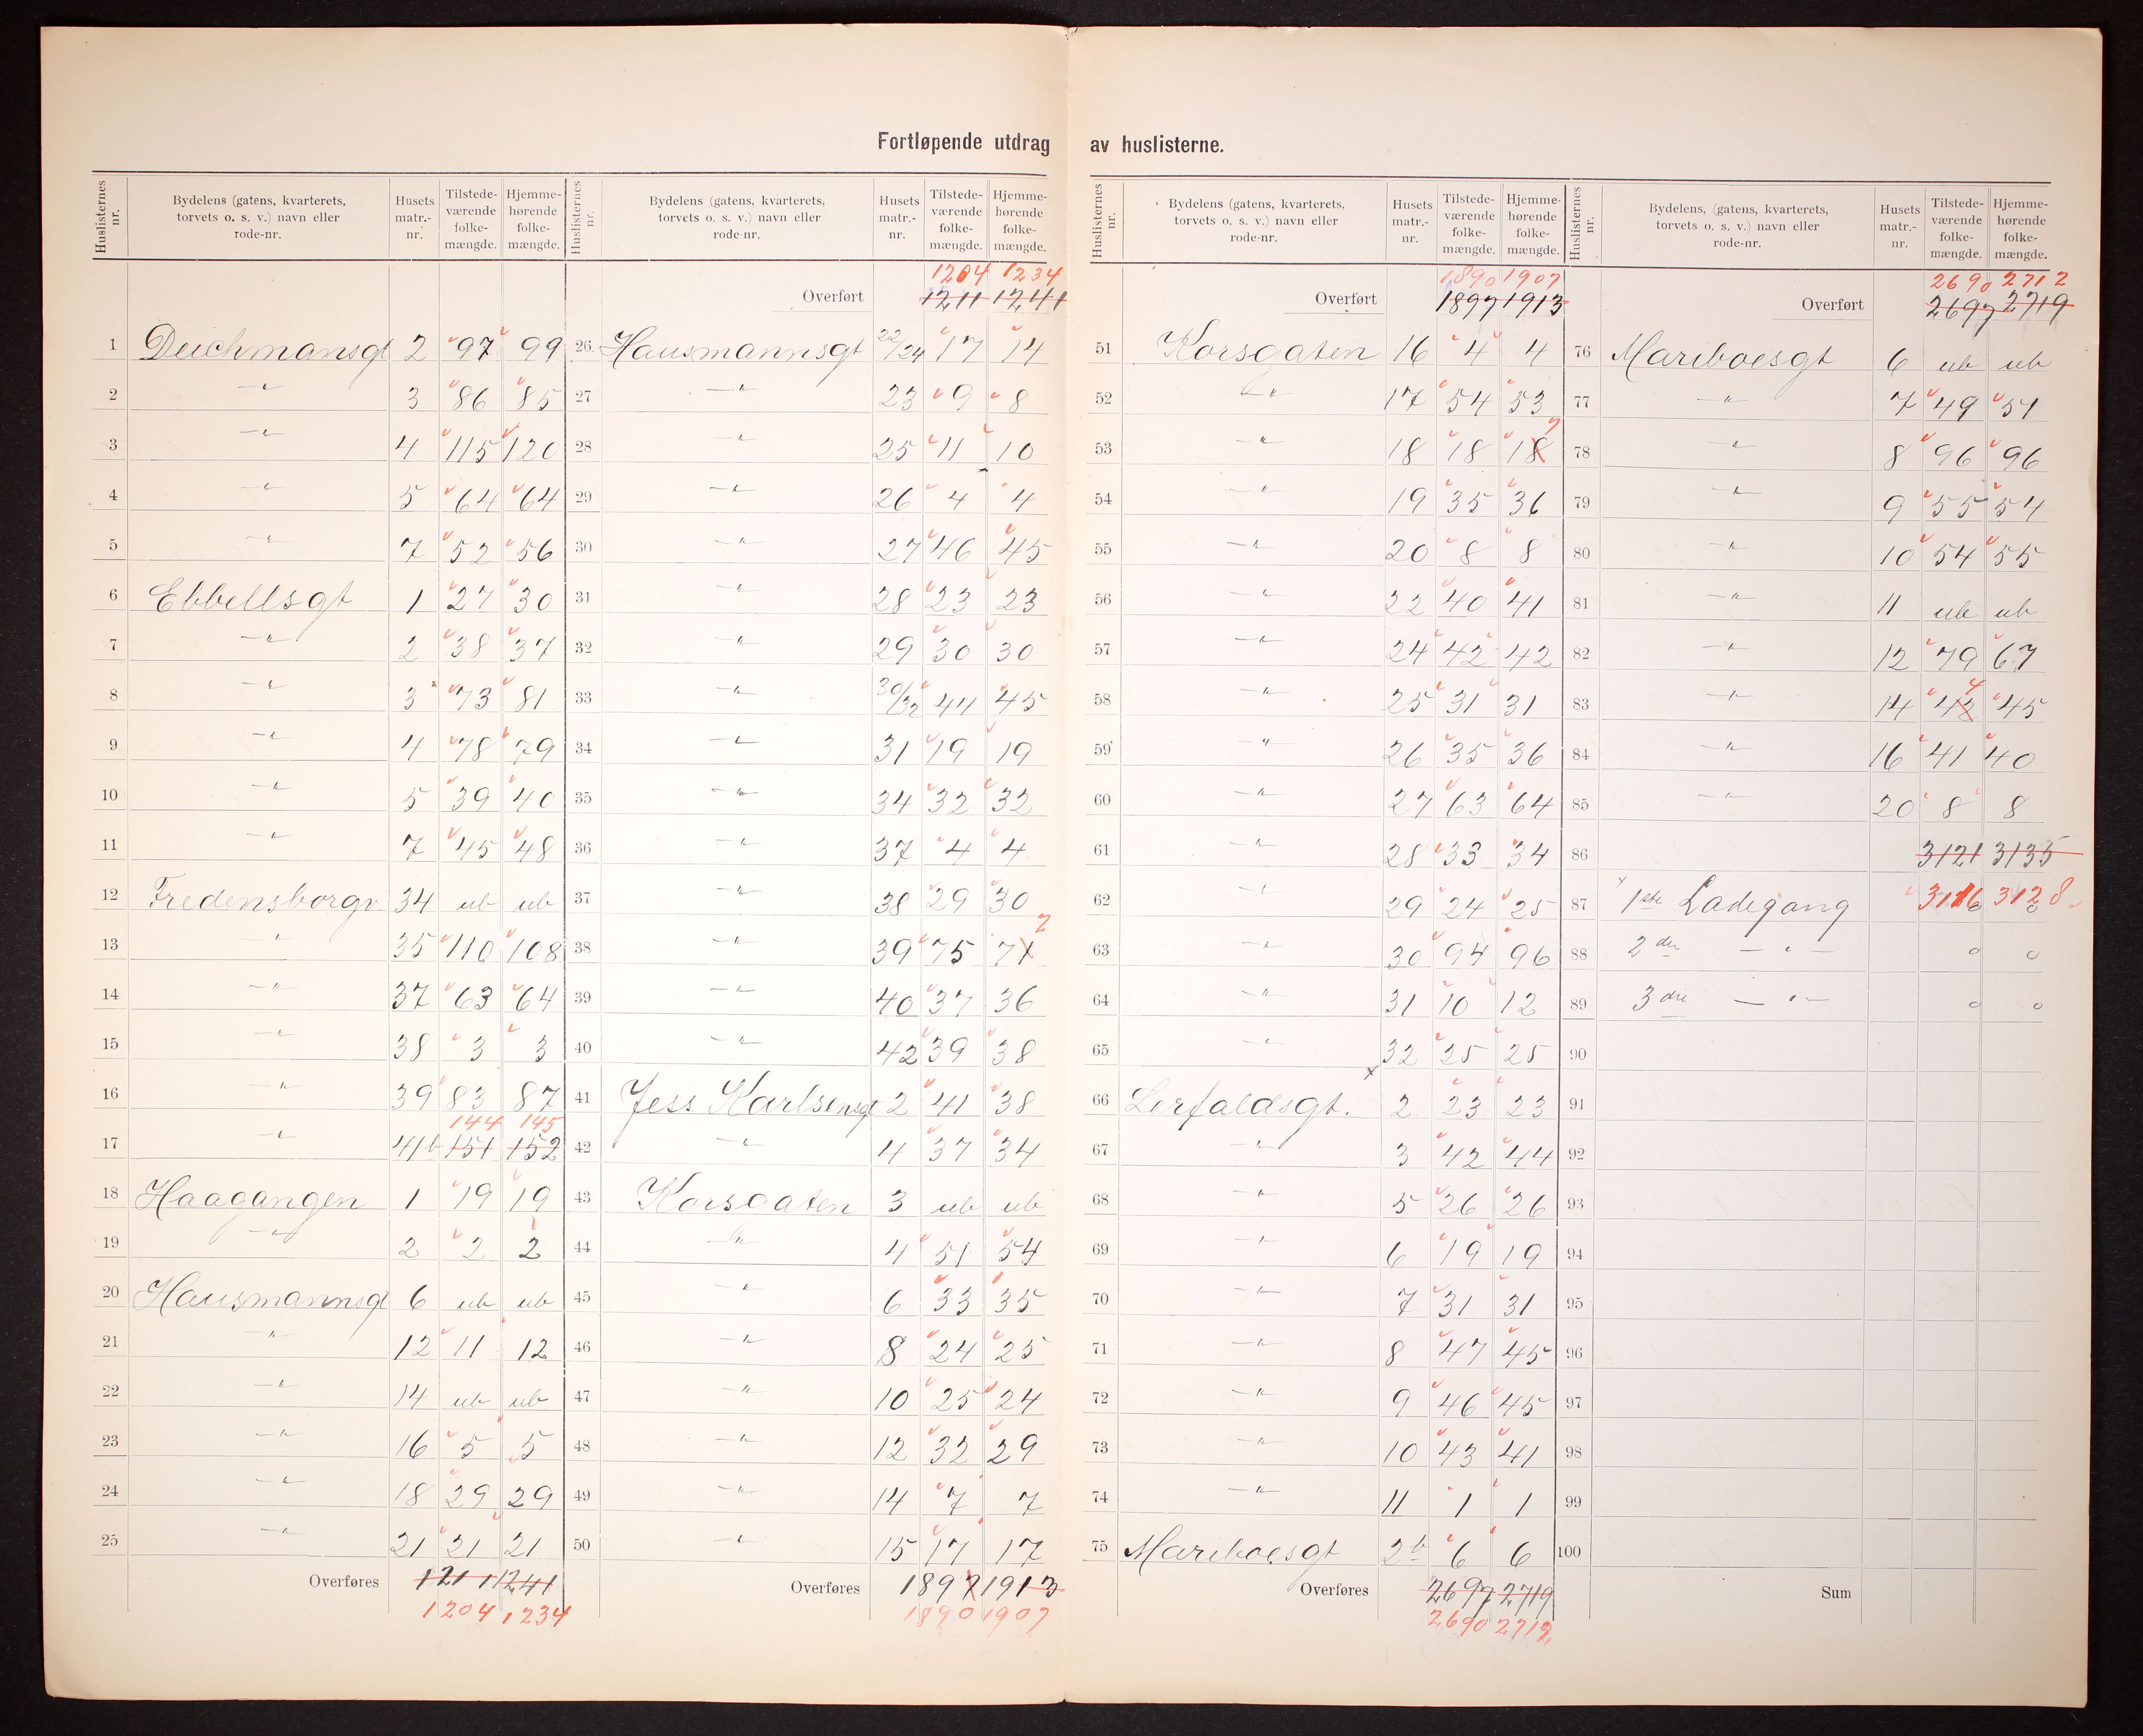 Fortløpende utdrag av huslisterne.
Huslisternes nr. | Bydelens (gatens, kvarterets, torvets o. s. v.) navn eller rode-nr. | Husets matr.-nr. | Tilstede-værende folke-mængde. | Hjemme-hørende folke-mængde.
1 Deichmansgt 2 97 99
2 —"— 3 86 85
3 —"— 4 115 120
4 —"— 5 64 64
5 —"— 7 52 56
6 Ebbellsgt 1 27 30
7 —"— 2 38 37
8 —"— 3 73 81
9 —"— 4 78 79
10 —"— 5 39 40
11 —"— 7 45 48
12 Fredensborgv 34 ub ub
13 —"— 35 110 108
14 —"— 37 63 64
15 —"— 38 3 3
16 —"— 39 83 87
144 145
17 —"— 41b 151 152
18 Haagangen 1 19 19
19 —"— 2 2 2
20 Hausmannsgt 6 ub ub
21 —"— 12 11 12
22 —"— 14 ub ub
23 —"— 16 5 5
24 —"— 18 29 29
25 —"— 21 21 21
Overføres 1211 1241
1204 1234
Huslisternes nr. | Bydelens (gatens, kvarterets, torvets o. s. v.) navn eller rode-nr. | Husets matr.-nr. | Tilstede-værende folke-mængde. | Hjemme-hørende folke-mængde.
1204 1234
Overført 1211 1241
26 Hausmannsgt 22/24 17 14
27 —"— 23 9 8
28 —"— 25 11 10
29 —"— 26 4 4
30 —"— 27 46 45
31 —"— 28 23 23
32 —"— 29 30 30
33 —"— 30/32 44 45
34 —"— 31 19 19
35 —"— 34 32 32
36 —"— 37 4 4
37 —"— 38 29 30
38 —"— 39 75 71 2
39 —"— 40 37 36
40 —"— 42 39 38
41 Jess Karlsensgt 2 41 38
42 —"— 4 37 34
43 Korsgaten 3 ub ub
44 —"— 4 51 54
45 —"— 6 33 35
46 —"— 8 24 25
47 —"— 10 25 24
48 —"— 12 32 29
49 —"— 14 7 7
50 —"— 15 17 17
Overføres 1897 1913
1890 1907
Huslisternes nr. | Bydelens (gatens, kvarterets, torvets o. s. v.) navn eller rode-nr. | Husets matr.-nr. | Tilstede-værende folke-mængde. | Hjemme-hørende folke-mængde.
1890 1907
Overført 1897 1913
51 Korsgaten 16 4 4
52 —"— 17 54 53
53 —"— 18 18 18 7
54 —"— 19 35 36
55 —"— 20 8 8
56 —"— 22 40 41
57 —"— 24 42 42
58 —"— 25 31 31
59 —"— 26 35 36
60 —"— 27 63 64
61 —"— 28 33 34
62 —"— 29 24 25
63 —"— 30 94 96
64 —"— 31 10 12
65 —"— 32 25 25
66 x Lerfaldsgt. 2 23 23
67 —"— 3 42 44
68 —"— 5 26 26
69 —"— 6 19 19
70 —"— 7 31 31
71 —"— 8 47 45
72 —"— 9 46 45
73 —"— 10 43 41
74 —"— 11 1 1
75 Mariboesgt 2b 6 6
Overføres 2697 2719
2690 2712
Huslisternes nr. | Bydelens, (gatens, kvarterets, torvets o. s. v.) navn eller rode-nr. | Husets matr.-nr. | Tilstede-værende folke-mængde. | Hjemme-hørende folke-mængde.
2690 2712
Overført 2697 2719
76 Mariboesgt 6 ub ub
77 —"— 7 49 51
78 —"— 8 96 96
79 —"— 9 55 54
80 —"— 10 54 55
81 —"— 11 ub ub
82 —"— 12 79 67
83 —"— 14 48 4 45
84 —"— 16 41 40
85 —"— 20 8 8
86 3121 3135
3116 3128
87 1ste Ladegang 0 0
88 2den —"— 0 0
89 3die —"— 0 0
90
91
92
93
94
95
96
97
98
99
100
Sum